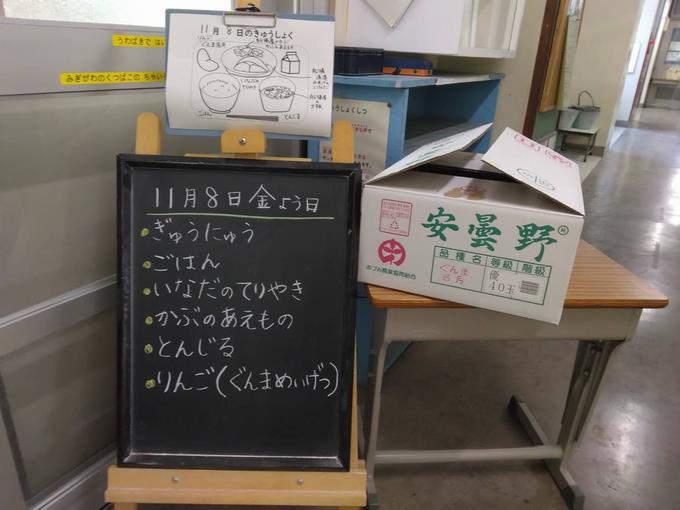 うわばきで は
みぎがわのくつばこの
11月 8日のきゅうしょく
りんご
ぐんま名月
いなだの
てりやき
ごはん
とんじる
11月8日 金よう日
ぎゅうにゅう
ごはん
いなだのてりやき
かぶのあえもの
とんじる
りんご(ぐんまめいげつ)
安曇野®
あづみ農業協同組合
品種名 等級 階級
ぐんま
名月
優
40玉